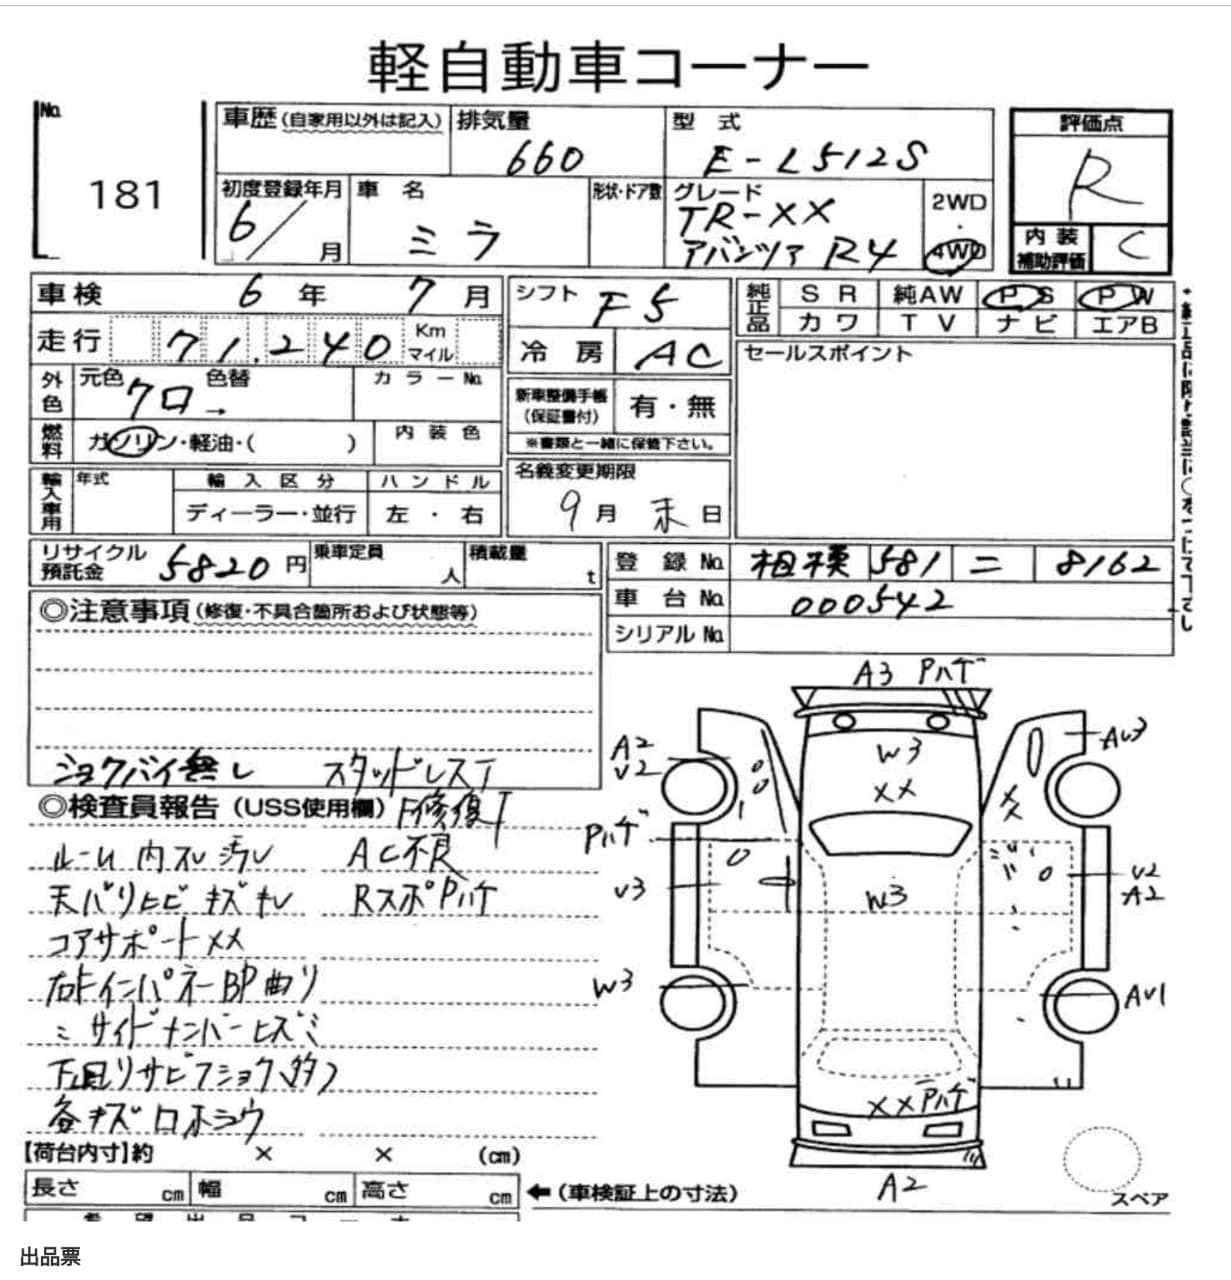 軽自動車コーナー
No. 181
車歴 (自家用以外は記入)
排気量 660
型式 E-L512S
評価点 R
内装補助評価 C
初度登録年月 6/ 月
車名 ミラ
形状・ドア数
グレード TR-XX アバンツァ R4
2WD ・ 4WD
車検 6年 7月
走行 71.240 Km マイル
外色 元色 クロ 色替 →
カラーNo.
燃料 ガソリン・軽油・( )
内装色
輸入車用 年式
輸入区分 ディーラー・並行
ハンドル 左・右
シフト F5
冷房 AC
新車整備手帳 (保証書付) 有・無
※書類と一緒に保管下さい。
名義変更期限 9月 末日
純正品 SR 純AW PS PW
カワ TV ナビ エアB
セールスポイント
リサイクル預託金 5820円
乗車定員 人
積載量 t
登録No. 相模 581 ニ 8162
車台No. 000542
シリアルNo.
◎注意事項 (修復・不具合箇所および状態等)
ショクバイ無し スタッドレスT
◎検査員報告 (USS使用欄) F修復T
ルーム内スレ汚レ AC不良
天バリヒビ キズキレ RスポPハゲ
コアサポートXX
右Fインパネー BP曲り
ミサイドメンバーヒズミ
下廻りサビフショク(多)
各キズ
【荷台内寸】約 × × (cm)
長さ cm 幅 cm 高さ cm
←(車検証上の寸法)
A3 Pハゲ
A2
U2
W3
XX
AU3
X
X
Pハゲ
U3
W3
U2
A2
W3
AU1
XX Pハゲ
A2
スペア
出品票